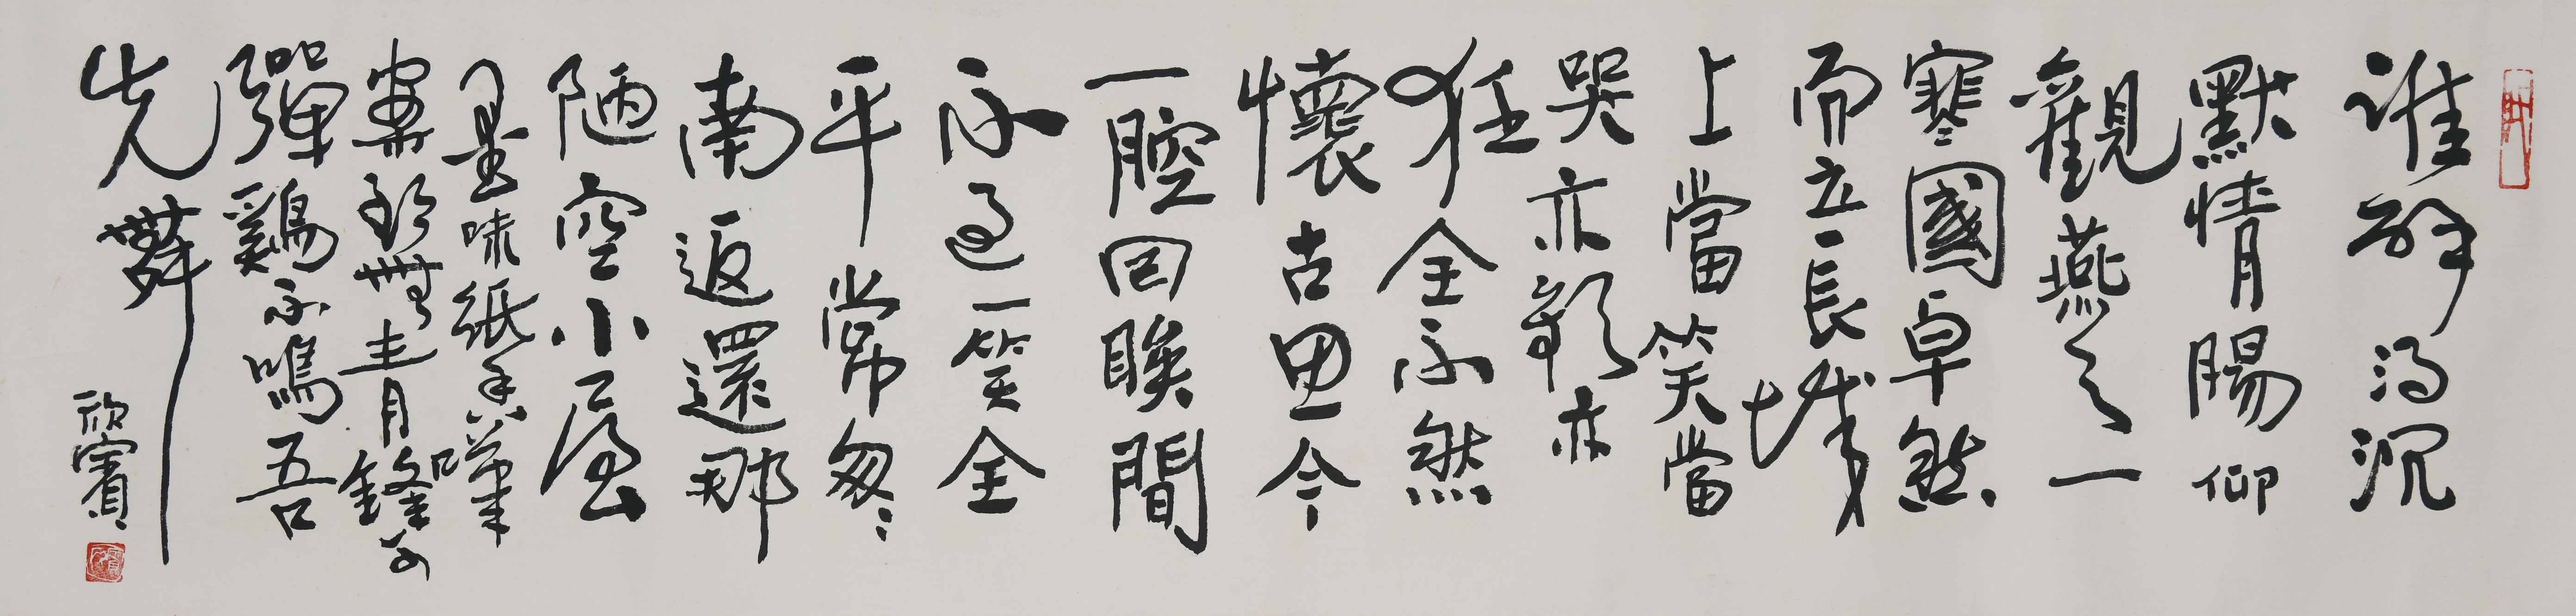 誰解得沉
默情腸仰
觀燕之一
寒國卓然
而立長城
上當笑當
哭亦歌亦
狂全不然
懷古思今
一腔回眸間
不過一笑全
平常匆匆
南返還那
陋空小屋
墨味紙香
案無青鋒可
彈雞不鳴吾
先舞
欣賓